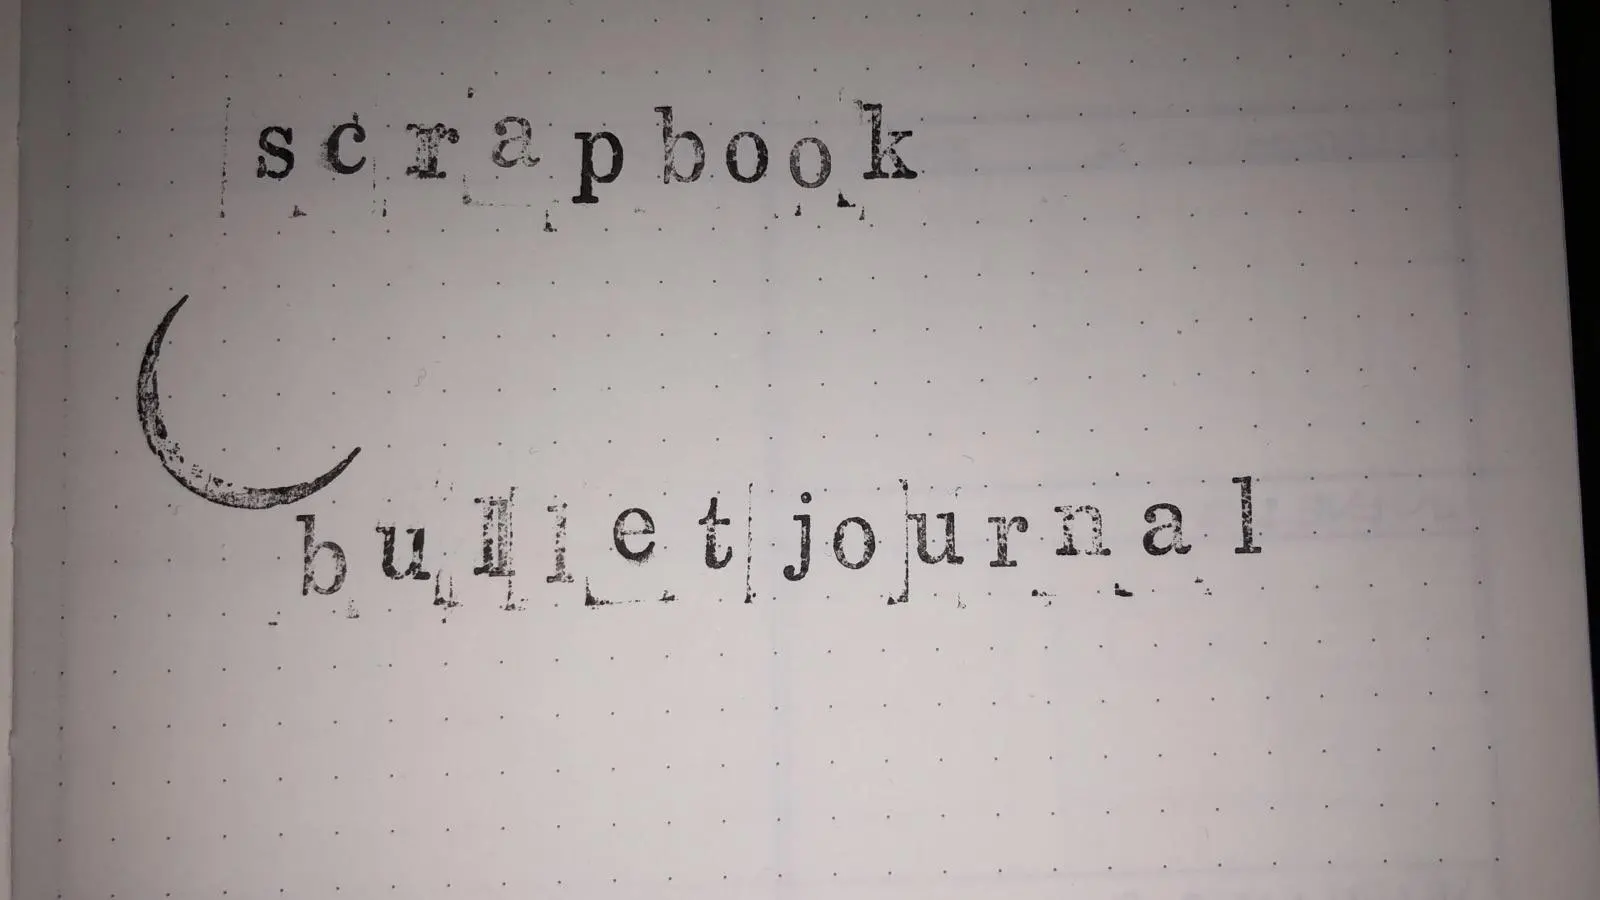 scrapbook
bullet journal